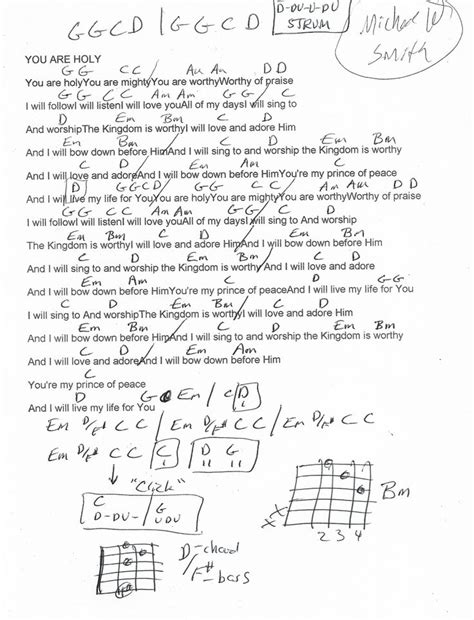 GGCD | GGCD
D-DU-U-DU
STRUM
Michael W
Smith
YOU ARE HOLY
G G CC / Am Am D D
You are holyYou are mightyYou are worthyWorthy of praise
G G CC Am Am G G / C
I will followI will listenI will love youAll of my daysI will sing to
D Em Bm C D
And worshipThe Kingdom is worthyI will love and adore Him
Em Bm C D Em Bm
And I will bow down before HimAnd I will sing to and worship the Kingdom is worthy
C D Em Am C
And I will love and adoreAnd I will bow down before HimYou're my prince of peace
D GGCD GG CC Am Am D D
And I will live my life for YouYou are holyYou are mightyYou are worthyWorthy of praise
G G CC Am Am G G C D
I will followI will listenI will love youAll of my daysI will sing to And worship
Em Bm C D Em Bm
The Kingdom is worthyI will love and adore HimAnd I will bow down before Him
C D Em Bm C D
And I will sing to and worship the Kingdom is worthyAnd I will love and adore
Em Am C D GG
And I will bow down before HimYou're my prince of peaceAnd I will live my life for You
C D Em Bm C D
I will sing to And worshipThe Kingdom is worthyI will love and adore Him
Em Bm C D Em Bm
And I will bow down before HimAnd I will sing to and worship the Kingdom is worthy
C D Em Am
And I will love and adoreAnd I will bow down before Him
C
You're my prince of peace
D G Em / C D
And I will live my life for You
Em D/F# C C / Em D/F# C C / Em D/F# C C
Em D/F# C C C D G
"Click"
C G
D-DU- / UDU
Bm
X X
2 3 4
D-chord
/F#-bass